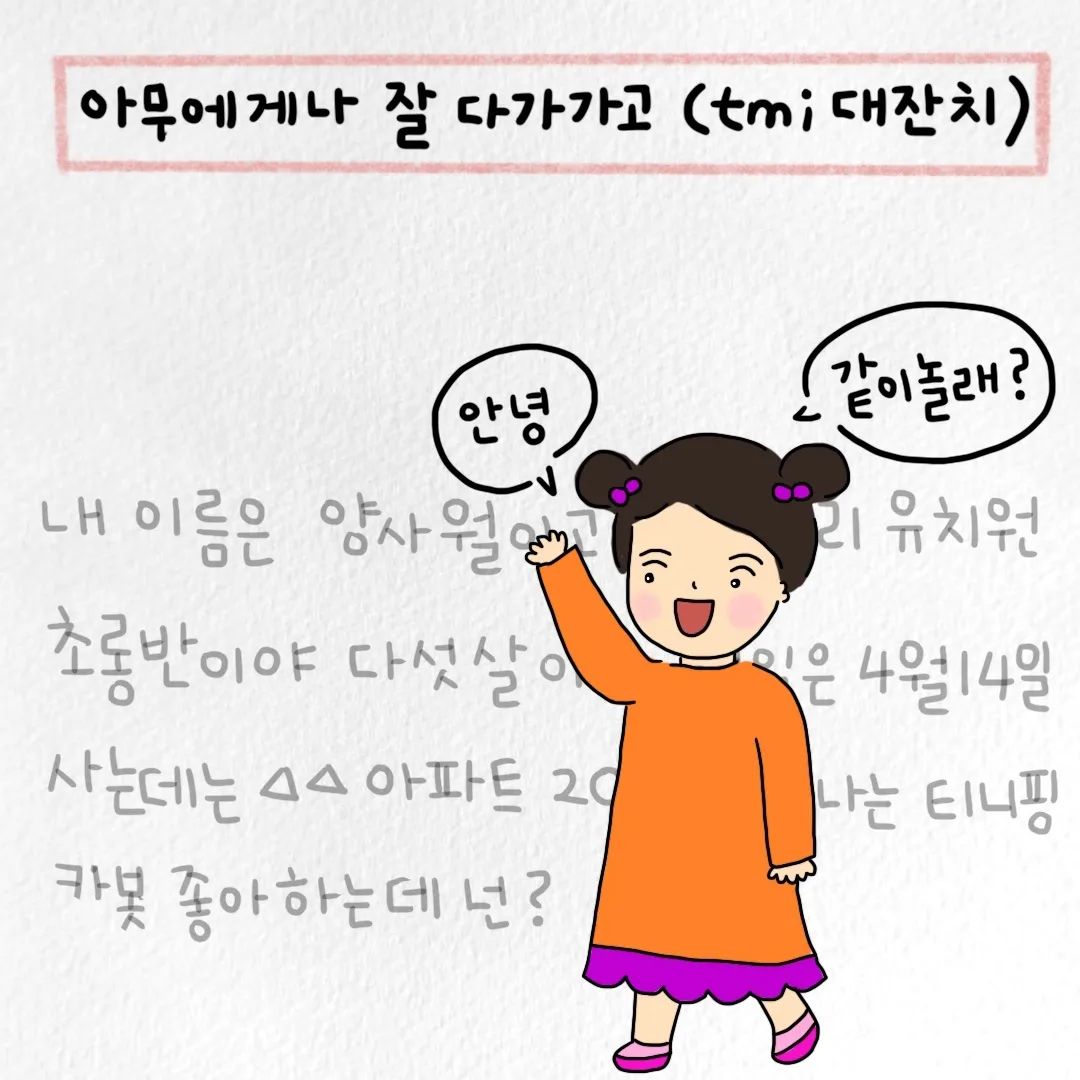 아무에게나 잘 다가가고 (tmi 대잔치)
안녕
같이놀래?
내 이름은 양사월이고 리 유치원
초롱반이야 다섯살이 은 4월14일
사는데는 △△ 아파트 20 나는 티니핑
카봇 좋아하는데 넌?